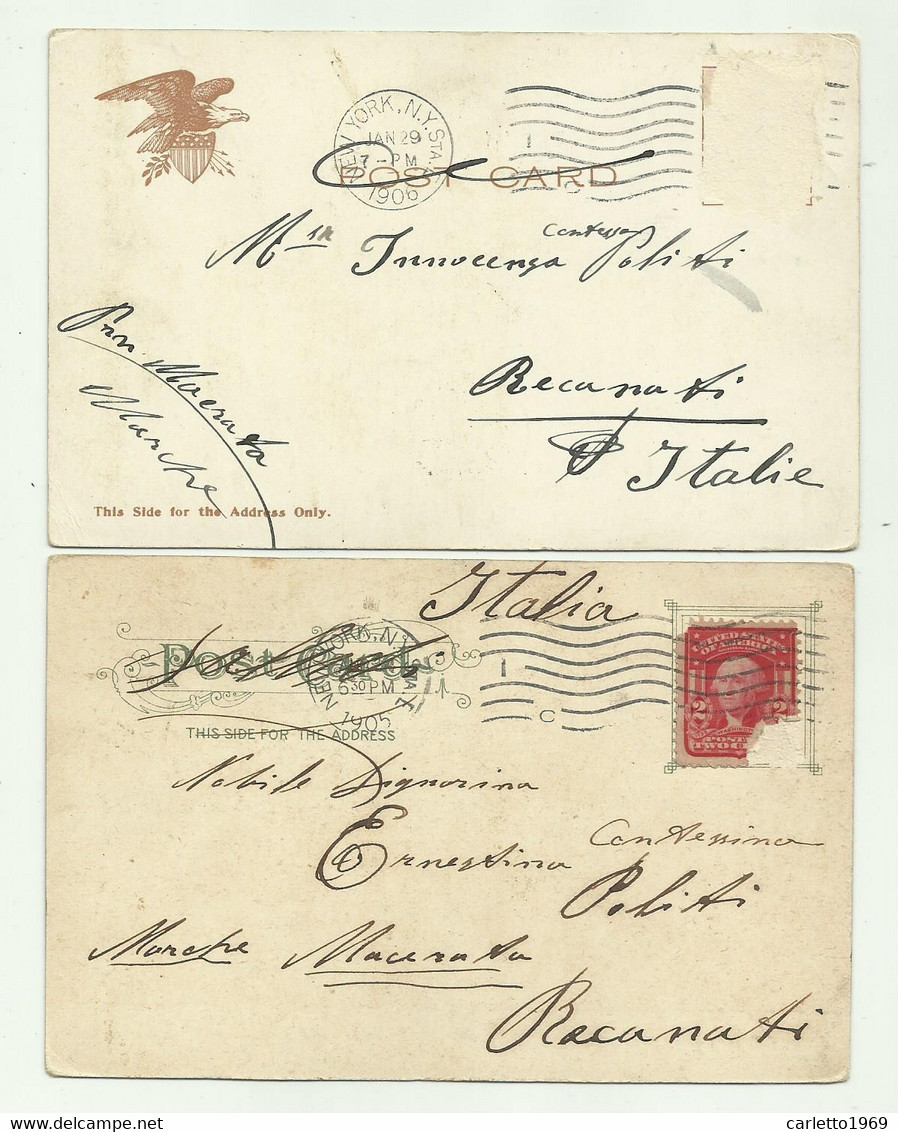 NEW YORK, N.Y. STA.
JAN 29
7 - PM
1906
POST CARD
Contessa
M^in Innocenza Politi
Recanati
Italie
Macerata
Marche
This Side for the Address Only.
Italia
Post Card
NEW YORK, N.Y.
6 30 PM
1905
C
THIS SIDE FOR THE ADDRESS
UNITED STATES
OF AMERICA
2
Nobile Signorina
Contessina
Ernestina Politi
Marche Macerata
Recanati
carletto1969